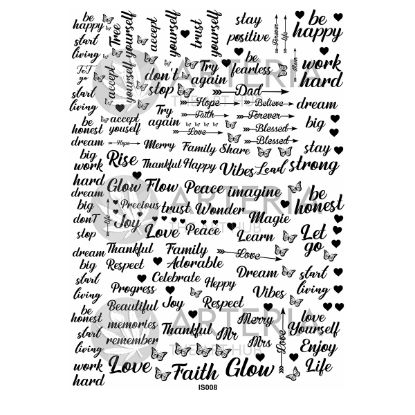 be happy
start living
Let go
start living
be honest
dream big
work hard
dream big
don't stop
dream big
start living
be honest
start living
work hard
Tree
accept yourself
accept yourself
trust yourself
stay positive
Forever
life
be happy
don't stop
Try again
be fearless
Mom
work hard
accept yourself
Dad
Hope
Believe
Faith
Forever
Love
Blessed
Blessed
Try again
dream big
Hope
Merry
Family
Share
stay strong
Rise
Thankful
Happy
Vibes
Lead
Glow
Flow
Peace
imagine
be honest
Precious
trust
Wonder
Magic
Joy
Love
Peace
Learn
Let go
Thankful
Family
Love
Respect
Adorable
Dream
start living
Celebrate
Progress
Happy
Vibes
Beautiful memories remember
Joy
Respect
Merry
love Yourself
Thankful
Mr
Mrs
Enjoy Life
Love
Faith
Glow
ARTERIA
ARTERIA
ARTERIA
IS008